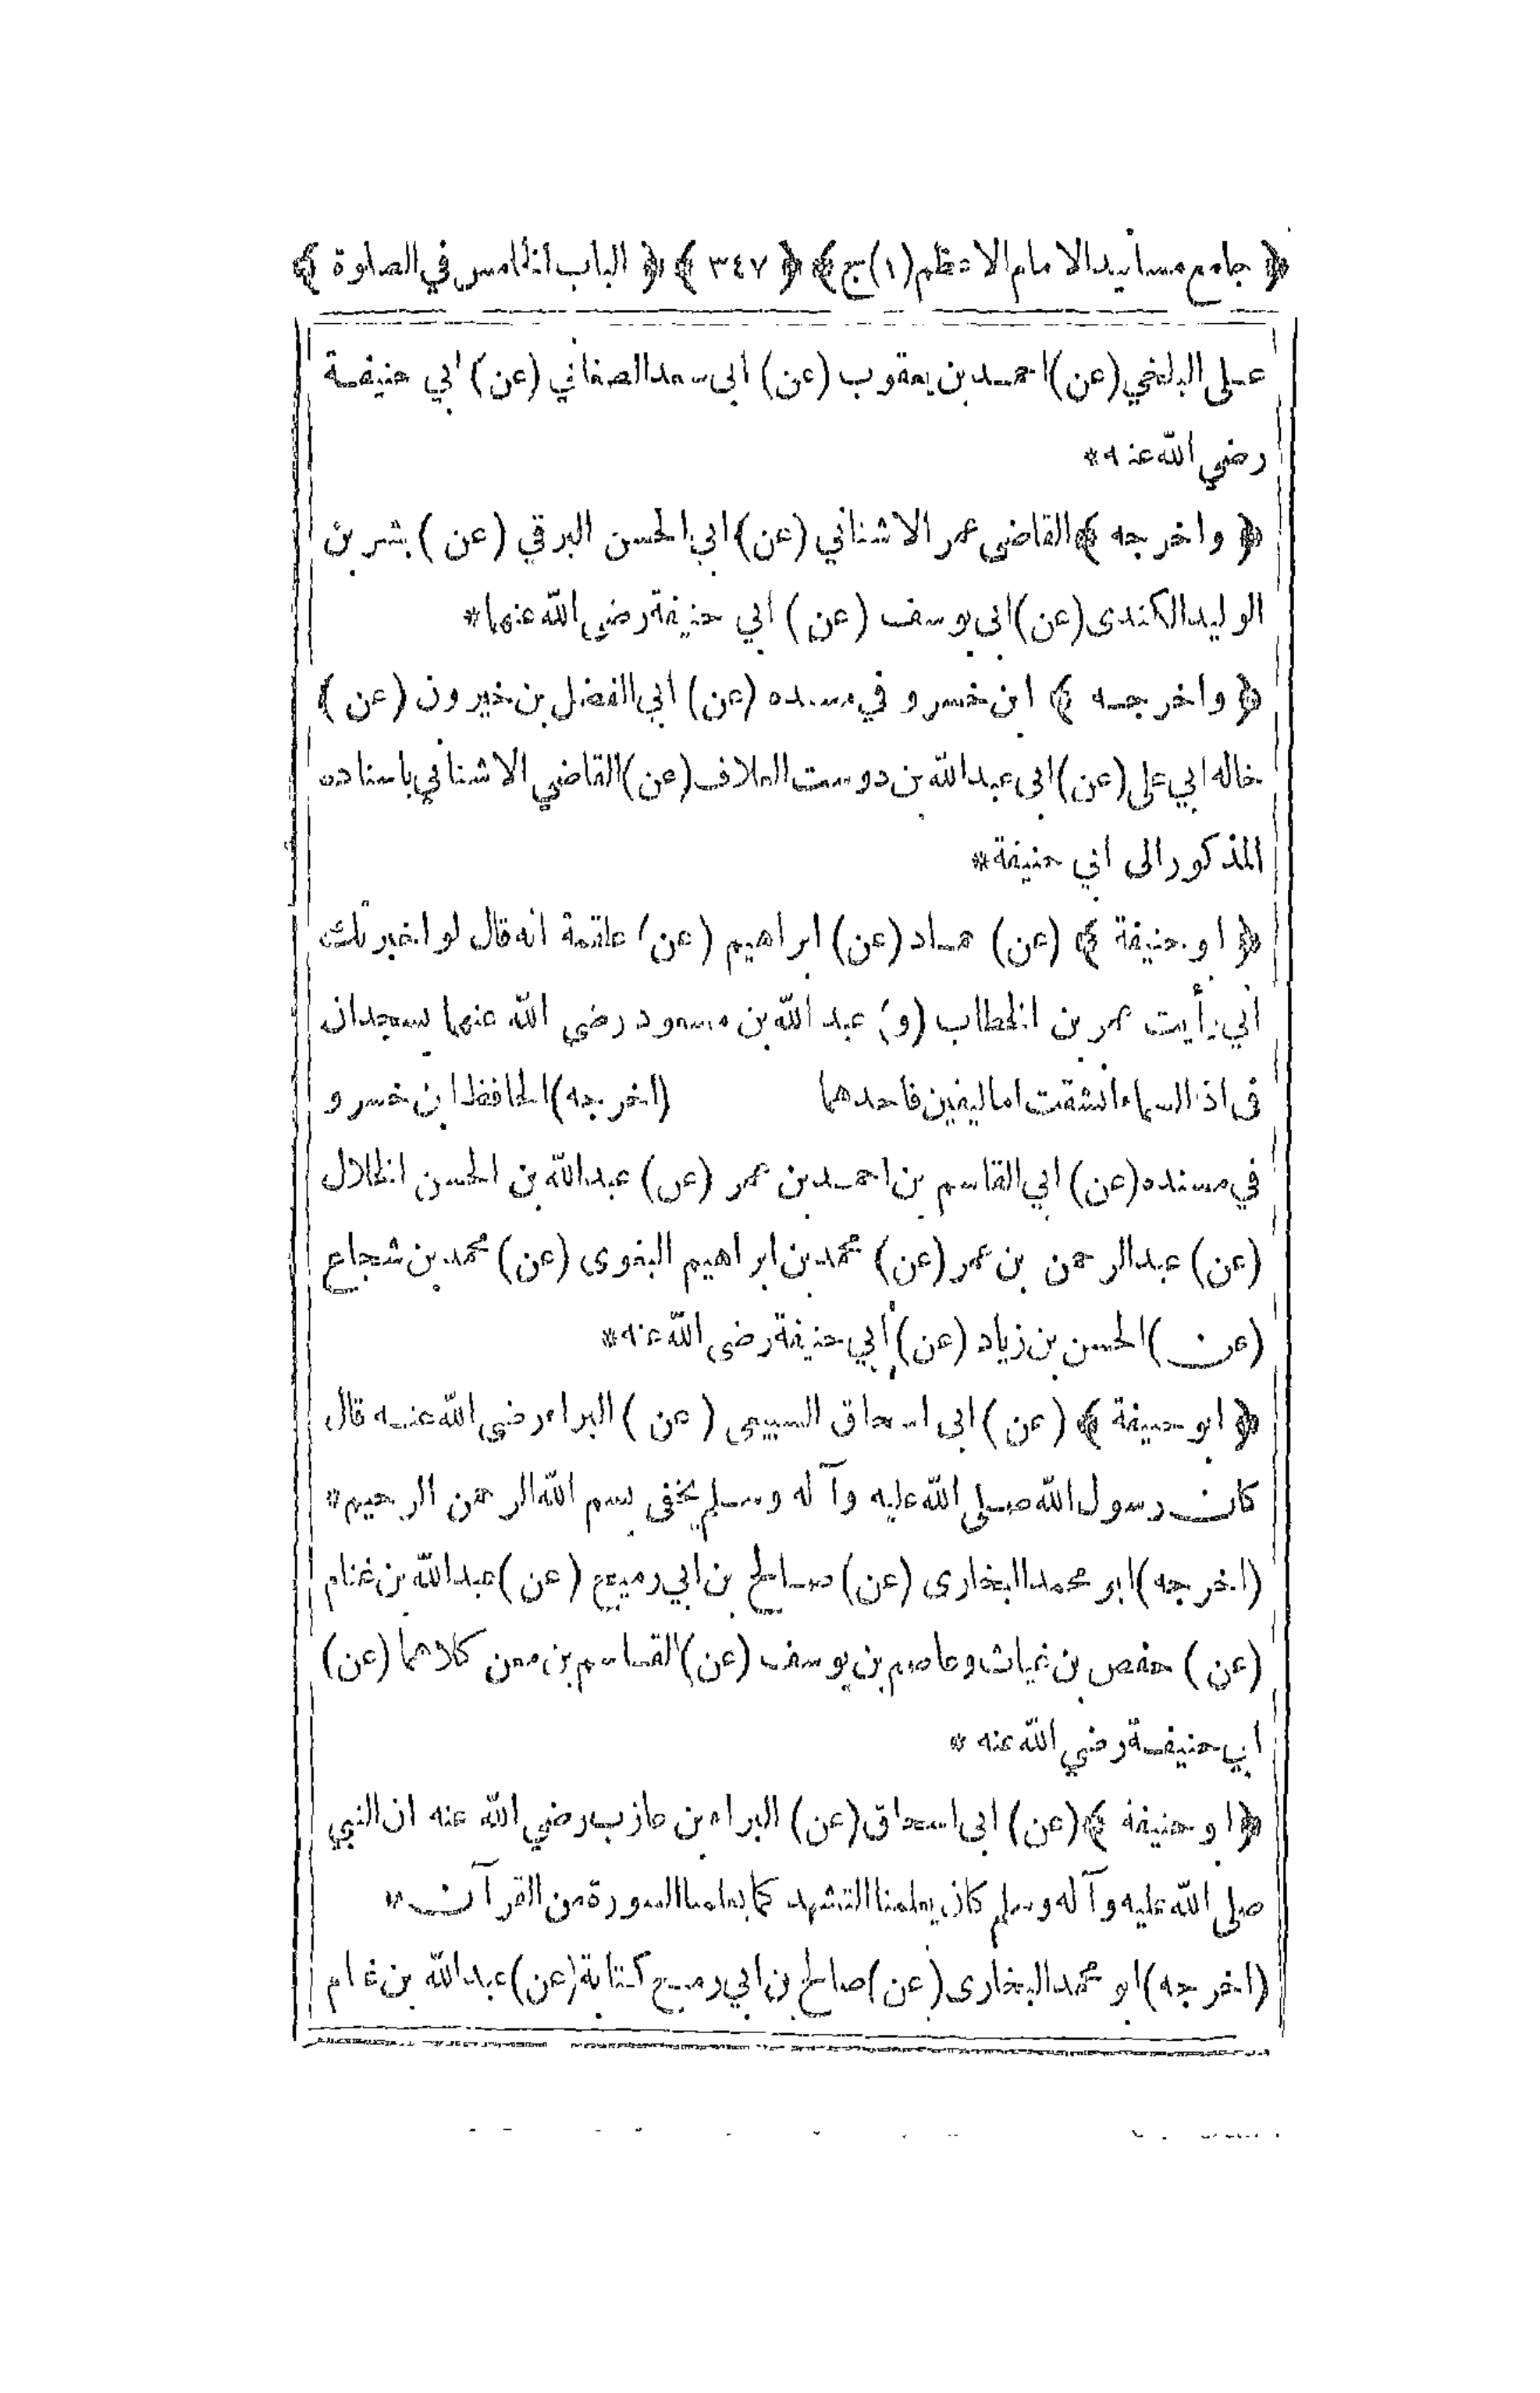 ﴿ جامع مسانيد الامام الاعظم (١) ج ﴾ ﴿ ٣٤٧ ﴾ ﴿ الباب الخامس في الصلوة ﴾
على البلخي (عن) احمد بن يعقوب (عن) ابى سعد الصغاني (عن) ابي حنيفة
رضي الله عنه *
﴿ واخرجه ﴾ القاضى عمر الاشناني (عن) ابي الحسن البرقي (عن) بشر بن
الوليد الكندى (عن) ابى يوسف (عن) ابي حنيفة رضي الله عنهما *
﴿ واخرجه ﴾ ابن خسرو في مسنده (عن) ابي الفضل بن خيرون (عن)
خاله ابي على (عن) ابى عبد الله بن دوست العلاف (عن) القاضي الاشناني باسناده
المذكور الى ابي حنيفة *
﴿ ابو حنيفة ﴾ (عن) حماد (عن) ابراهيم (عن) علقمة انه قال لو اخبرتك
أني رأيت عمر بن الخطاب (و) عبد الله بن مسعود رضي الله عنهما يسجدان
فى اذا السماء انشقت اما ليفين فاحدهما (اخرجه) الحافظ ابن خسرو
في مسنده (عن) ابي القاسم بن احمد بن عمر (عن) عبد الله بن الحسن الخلال
(عن) عبد الرحمن بن عمر (عن) محمد بن ابراهيم البغوى (عن) محمد بن شجاع
(عن) الحسن بن زياد (عن) أبي حنيفة رضى الله عنه *
﴿ ابو حنيفة ﴾ (عن) ابى اسحاق السبيعى (عن) البراء رضى الله عنه قال
كان رسول الله صلى الله عليه وآله وسلم يخفى بسم الله الرحمن الرحيم *
(اخرجه) ابو محمد البخارى (عن) صالح بن ابي رميح (عن) عبد الله بن غنام
(عن) حفص بن غياث وعاصم بن يوسف (عن) القاسم بن معن كلاهما (عن)
ابي حنيفة رضي الله عنه *
﴿ ابو حنيفة ﴾ (عن) ابى اسحاق (عن) البراء بن عازب رضي الله عنه ان النبي
صلى الله عليه وآله وسلم كان يعلمنا التشهد كما يعلمنا السورة من القرآن *
(اخرجه) ابو محمد البخارى (عن) صالح بن ابي رميح كتابة (عن) عبد الله بن غنام